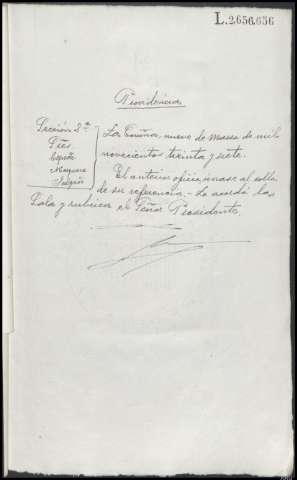 L.2.656.656
Providencia
Sección 2ª
Sres.
La Coruña, nueve de marzo de mil
novecientos treinta y siete.
El anterior oficio, únase al rollo
de su referencia.- Lo acordó la
Sala y rubrica el Señor Presidente.